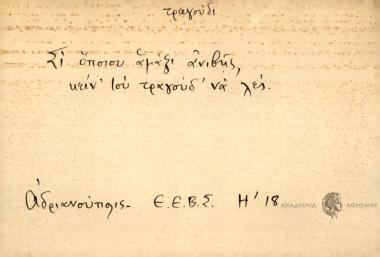 τραγούδι
Σ' ὅποιου ἁμάξι ἀνιβῇς,
κείν' τοὺ τραγούδ' νὰ λές.
Ἀδριανούπολις - Ε.Ε.Β.Σ. Η' 18
ΑΚΑΔΗΜΙΑ ΑΘΗΝΩΝ